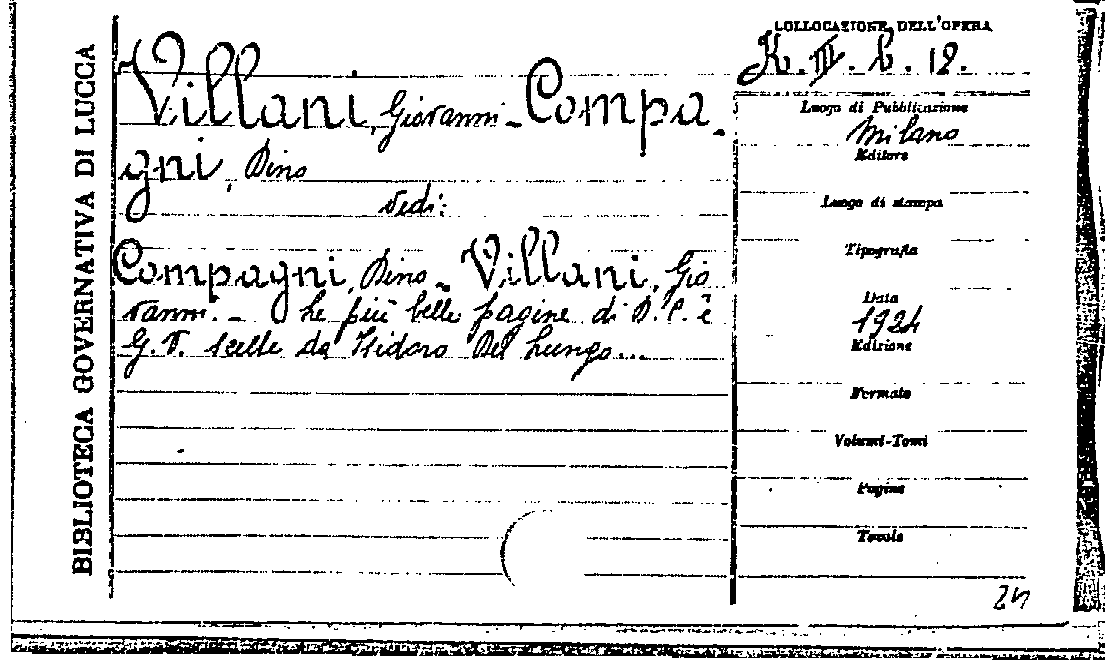 BIBLIOTECA GOVERNATIVA DI LUCCA
Villani, Giovanni - Compa-
gni, Dino
vedi:
Compagni, Dino - Villani, Gio
vanni. - Le più belle pagine di D. C. e
G. V. scelte da Isidoro Del Lungo...
COLLOCAZIONE DELL'OPERA
K. III. b. 12.
Luogo di Pubblicazione
Milano
Editore
Luogo di stampa
Tipografia
Data
1924
Edizione
Formato
Volumi-Tomi
Pagine
Tavole